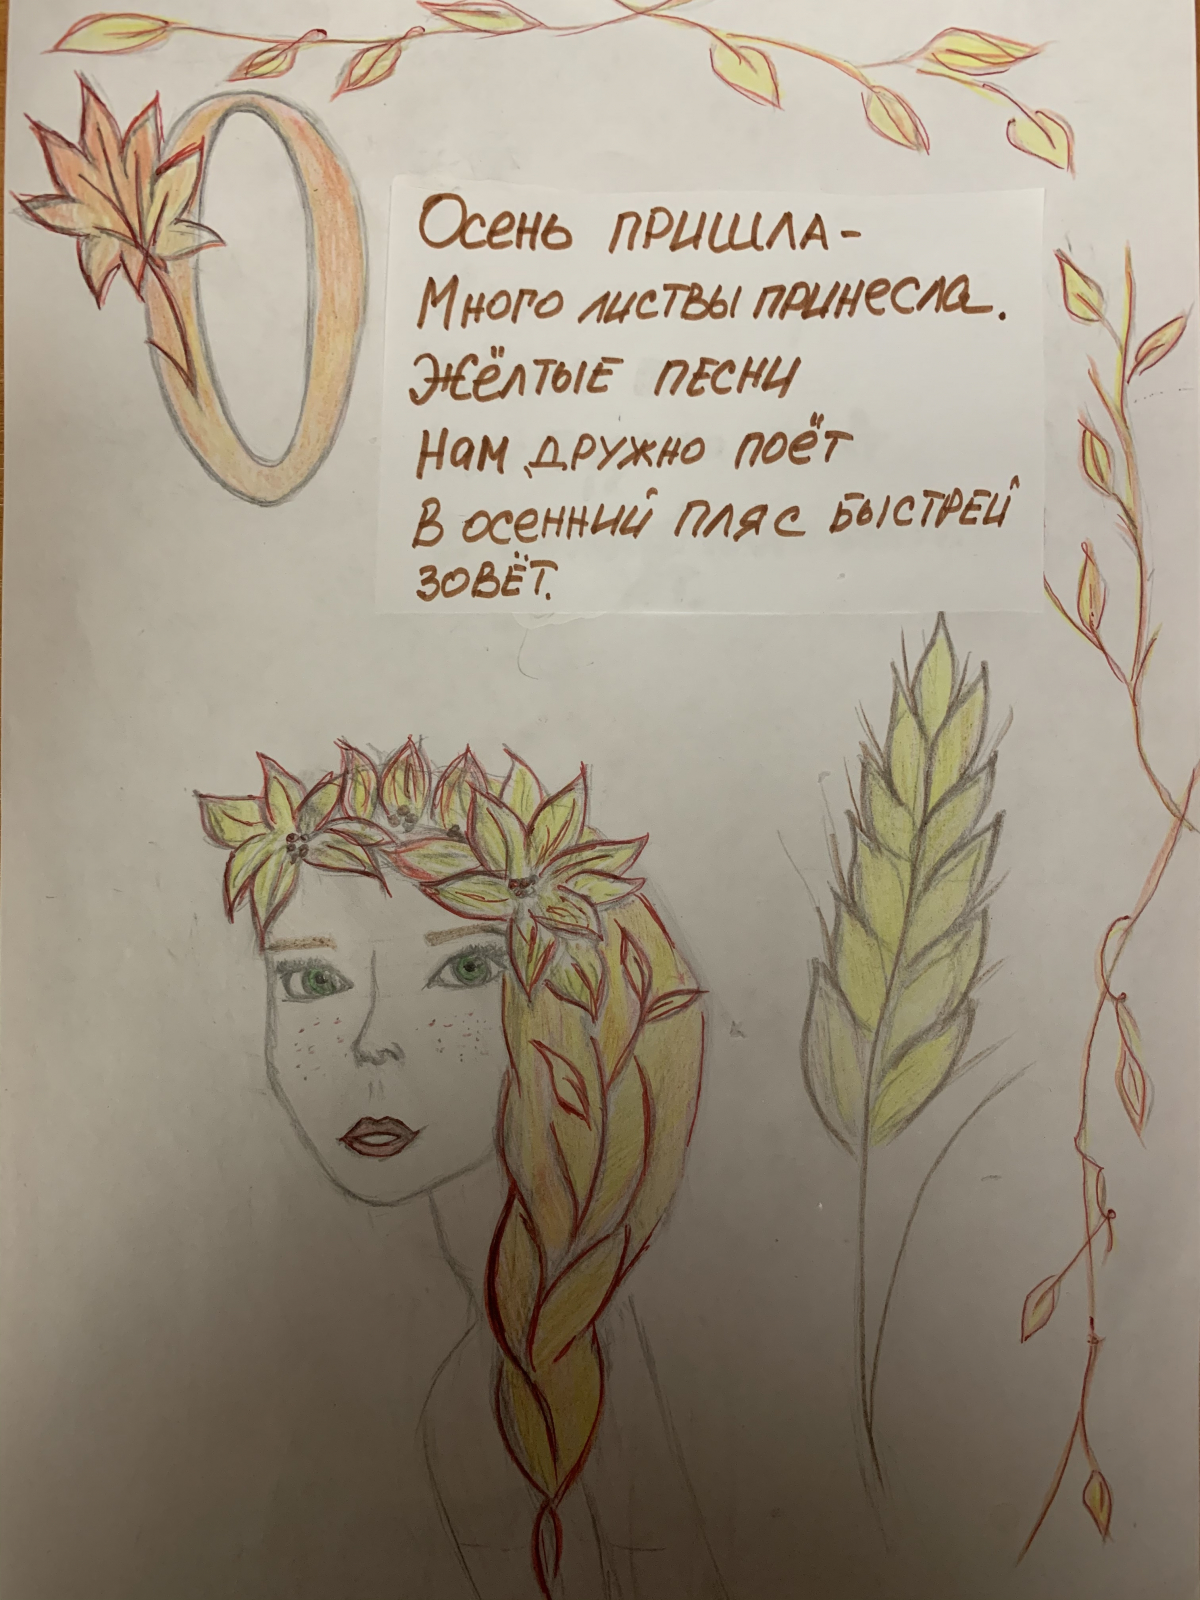 О
Осень пришла-
Много листвы принесла.
Жёлтые песни
Нам дружно поёт
В осенний пляс быстрей
зовёт.